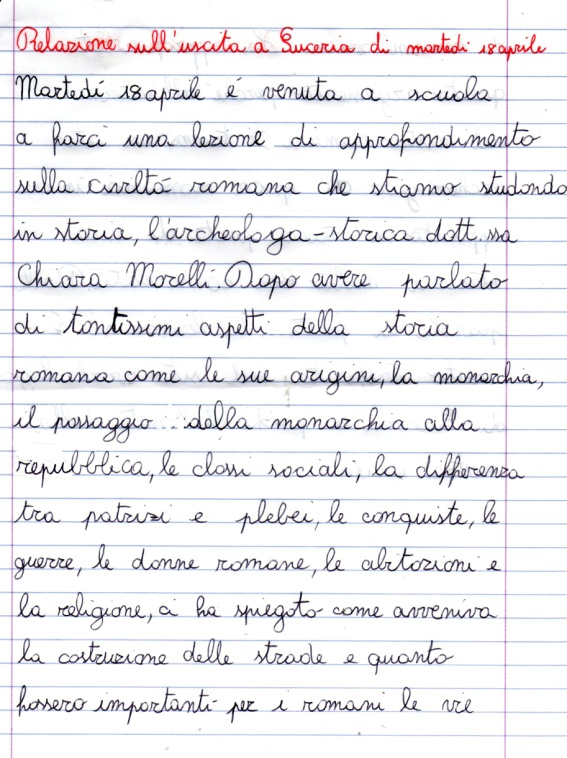 Relazione sull'uscita a Luceria di martedi 18 aprile
Martedí 18 aprile é venuta a scuola
a farci una lezione di approfondimento
sulla civiltá romana che stiamo studando
in storia, l'archeologa-storica dott.ssa
Chiara Morelli. Dopo avere parlato
di tantissimi aspetti della storia
romana come le sue origini, la monarchia,
il passaggio dalla monarchia alla
repubblica, le classi sociali, la differenza
tra patrizi e plebei, le conquiste, le
guerre, le donne romane, le abitazioni e
la religione, ci ha spiegato come avveniva
la costruzione delle strade e quanto
fossero importanti per i romani le vie